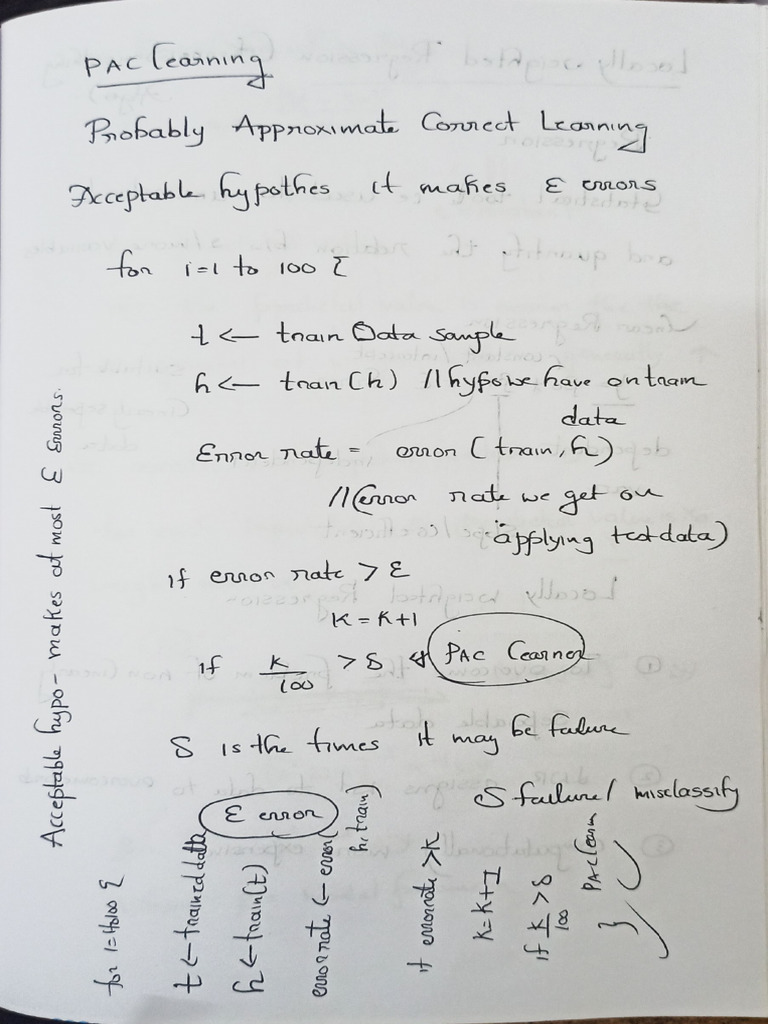 PAC Learning
Probably Approximate Correct Learning
Acceptable hypothes it makes ε errors
for i=1 to 100 {
t ← train Data sample
h ← tran(h) // hypo we have on train
data
Error rate = error (train, h)
// (error rate we get on
applying test data)
if error rate > ε
K = K+1
if K/100 > δ PAC Learner
δ is the times it may be failure
ε error
δ failure / misclassify
Acceptable hypo - makes at most ε Errors.
for i=1to100 {
t ← trained data
h ← train(t)
error rate ← error(
h, train)
if errorrate > K
K = K+1
if K/100 > δ
PAC learn
}